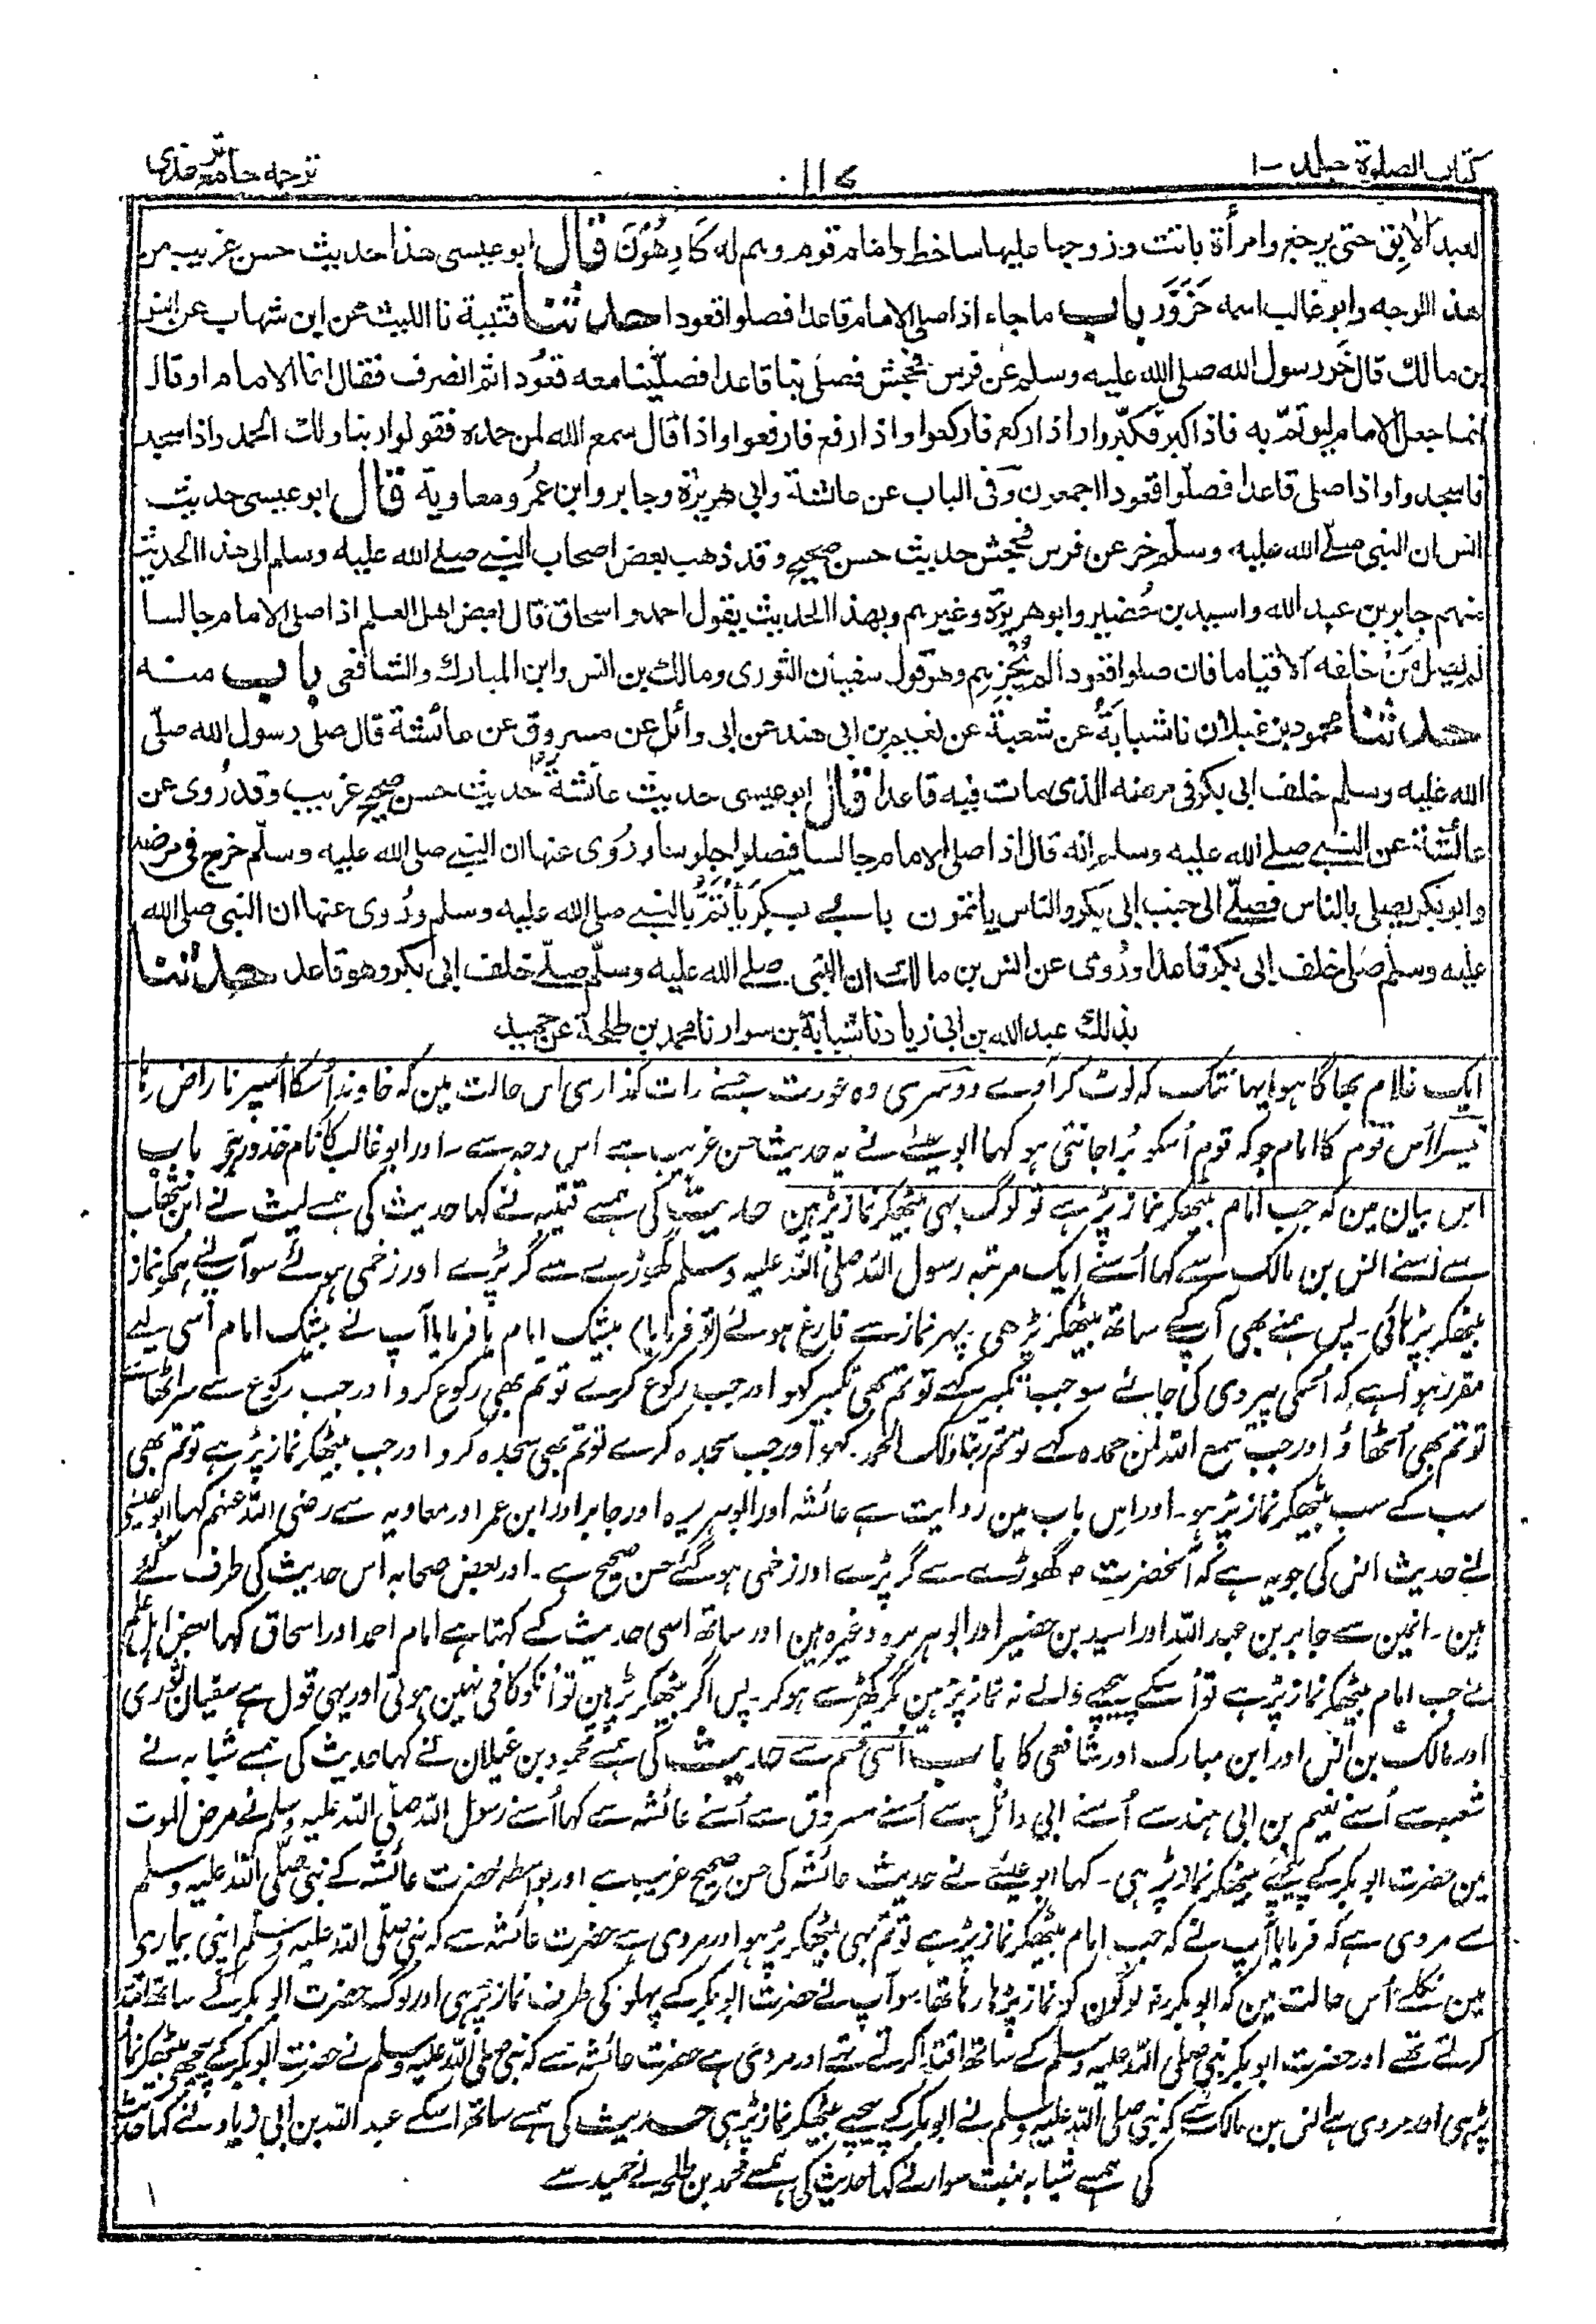 كتاب الصلوة جلد -١
١١٧
ترجمہ جامع ترمذی
العبد الآبق حتى يرجع وامرأة باتت وزوجها عليها ساخط وامام قوم وہم له كَارِهُوْنَ قال ابو عيسى هذا حديث حسن غريب من
هذا الوجه وابو غالب اسمه حَزَوَّر باب ما جاء اذا صلى الامام قاعدا فصلوا قعودا حدثنا قتيبة نا الليث عن ابن شهاب عن انس
بن مالك قال خَرَّ رسول الله صلى الله عليه وسلم عن فرس فجحش فصلى بنا قاعدا فصلّينا معه قعودا ثم انصرف فقال انما الامام او قال
انما جعل الامام ليؤتمّ به فاذا كبر فكبّروا واذا ركع فاركعوا واذا رفع فارفعوا واذا قال سمع الله لمن حمده فقولوا ربنا ولك الحمد واذا سجد
فاسجدوا واذا صلى قاعدا فصلّوا قعودا اجمعون وفى الباب عن عائشة وابى هريرة وجابر وابن عمر ومعاوية قال ابو عيسى حديث
انس ان النبى صلے الله عليه وسلّم خر عن فرس فجحش حديث حسن صحيح وقد ذهب بعض اصحاب النبے صلے الله عليه وسلم الى هذا الحديث
منهم جابر بن عبد الله واسيد بن حُضير وابو هريرة وغيرہم وبهذا الحديث يقول احمد واسحاق قال بعض اهل العلم اذا صلى الامام جالسا
لم يصل مَنْ خلفه الا قياما فان صلوا قعودا لم يُجزِہم وهو قول سفيان الثورى ومالك بن انس وابن المبارك والشافعى باب منه
حدثنا محمود بن غيلان نا شبابةُ عن شعبة عن نعيم بن ابى هند عن ابى وائل عن مسروق عن عائشة قال صلى رسول الله صلّى
الله عليه وسلم خلف ابى بكر فى مرضه الذى مات فيه قاعدا قال ابو عيسى حديث عائشة حديث حسن صحيح غريب وقد رُوى عن
عائشة عن النبے صلے الله عليه وسلم انه قال اذا صلى الامام جالسا فصلوا جلوسا ورُوى عنها ان النبے صلى الله عليه وسلّم خرج فى مرضه
وابو بكر يصلى بالناس فصلّے الى جنب ابى بكر والناس ياتمون بابے بكر يَأْتَمُّ بالنبے صلى الله عليه وسلم ورُوى عنها ان النبى صلى الله
عليه وسلم صلى خلف ابى بكر قاعدا ورُوى عن انس بن مالك ان النبى صلے الله عليه وسلّم صلّے خلف ابى بكر وهو قاعد حدثنا
بذلك عبد الله بن ابى زياد نا شبابة بن سوار نا محمد بن طلحة عن حميد
ایک غلام بھاگا ہوا یہانتک کہ لوٹ کر آوے دوسری وہ عورت جسنے رات گذاری اس حالت مین کہ خاوند اُسکا اُسپر ناراض رہا
تیسرا اُس قوم کا امام جو کہ قوم اُسکو بُرا جانتی ہو کہا ابو عیسے نے یہ حدیث حسن غریب ہے اس وجہ سے۔ اور ابو غالب کا نام حذور ہے باب
اس بیان مین کہ جب امام بیٹھکر نماز پڑہے تو لوگ بھی بیٹھکر نماز پڑہین حدیث کی ہمسے قتیبہ نے کہا حدیث کی ہمسے لیث نے ابن شہاب
سے اُسنے انس بن مالک سے کہا اُسنے ایک مرتبہ رسول اللہ صلی اللہ علیہ وسلم گھوڑے سے گر پڑے اور زخمی ہوئے سو آپ نے ہمکو نماز
بیٹھکر پڑہائی۔ پس ہمنے بھی آپکے ساتھ بیٹھکر پڑھی۔ پہر نماز سے فارغ ہوئے (تو فرمایا) بیشک امام یا فرمایا آپ نے بیشک امام اسی لیے
مقرر ہوا ہے کہ اُسکی پیروی کی جائے سو جب تکبیر کہے تو تم بھی تکبیر کہو اور جب رکوع کرے تو تم بھی رکوع کرو اور جب رکوع سے سر اٹھائے
تو تم بھی اُٹھاؤ اور جب سمع اللہ لمن حمدہ کہے تو تم ربنا ولک الحمد۔ کہو اور جب سجدہ کرے تو تم بھی سجدہ کرو اور جب بیٹھکر نماز پڑہے تو تم بھی
سب کے سب بیٹھکر نماز پڑہو۔ اور اس باب مین روایت ہے عائشہ اور ابو ہریرہ اور جابر اور ابن عمر اور معاویہ سے رضی اللہ عنہم کہا ابو عیسٰی
نے حدیث انس کی جو یہ ہے کہ آنحضرت م گھوڑے سے گر پڑے اور زخمی ہو گئے حسن صحیح ہے۔ اور بعض صحابہ اس حدیث کی طرف گئے
ہین۔ انہین سے جابر بن عبد اللہ اور اسید بن حضیر اور ابو ہریرہ وغیرہ ہین اور ساتھ اسی حدیث کے کہتا ہے امام احمد اور اسحاق کہا بعض اہل علم
نے جب امام بیٹھکر نماز پڑہے تو اُسکے پیچھے والے نہ نماز پڑہین مگر کھڑے ہو کر۔ پس اگر بیٹھکر پڑہین تو اُنکو کافی نہین ہوتی اور یہی قول ہے سفیان ثوری
اور مالک بن انس اور ابن مبارک اور شافعی کا باب اُسی قسم سے حدیث کی ہمسے محمود بن غیلان نے کہا حدیث کی ہمسے شبابہ نے
شعبہ سے اُسنے نعیم بن ابی ہند سے اُسنے ابی وائل سے اُسنے مسروق سے اُسنے عائشہ سے کہا اُسنے رسول اللہ صلی اللہ علیہ وسلم نے مرض الموت
مین حضرت ابوبکر کے پیچھے بیٹھکر نماز پڑہی۔ کہا ابو عیسے نے حدیث عائشہ کی حسن صحیح غریب ہے اور بواسطہ حضرت عائشہ کے نبی صلی اللہ علیہ وسلم
سے مروی ہے کہ فرمایا آپ نے کہ جب امام بیٹھکر نماز پڑہے تو تم بھی بیٹھکر پڑہو اور مروی ہے حضرت عائشہ سے کہ نبی صلی اللہ علیہ وسلم اپنی بیماری
مین نکلے اُس حالت مین کہ ابو بکر رض لوگون کو نماز پڑہا رہا تھا سو آپ نے حضرت ابو بکر کے پہلو کی طرف نماز پڑہی اور لوگ حضرت ابوبکر کے ساتھ اقتدا
کرتے تھے اور حضرت ابو بکر نبی صلی اللہ علیہ وسلم کے ساتھ اقتدا کرتے تھے اور مروی ہے حضرت عائشہ سے کہ نبی صلی اللہ علیہ وسلم نے حضرت ابو بکر کے پیچھے بیٹھکر نماز
پڑہی اور مروی ہے انس بن مالک سے کہ نبی صلی اللہ علیہ وسلم نے ابو بکر کے پیچھے بیٹھکر نماز پڑہی حدیث کی ہمسے ساتھ اسکے عبد اللہ بن ابی زیاد نے کہا حدیث
کی ہمسے شبابہ بنت سوار نے کہا حدیث کی ہمسے محمد بن طلحہ نے حمید سے